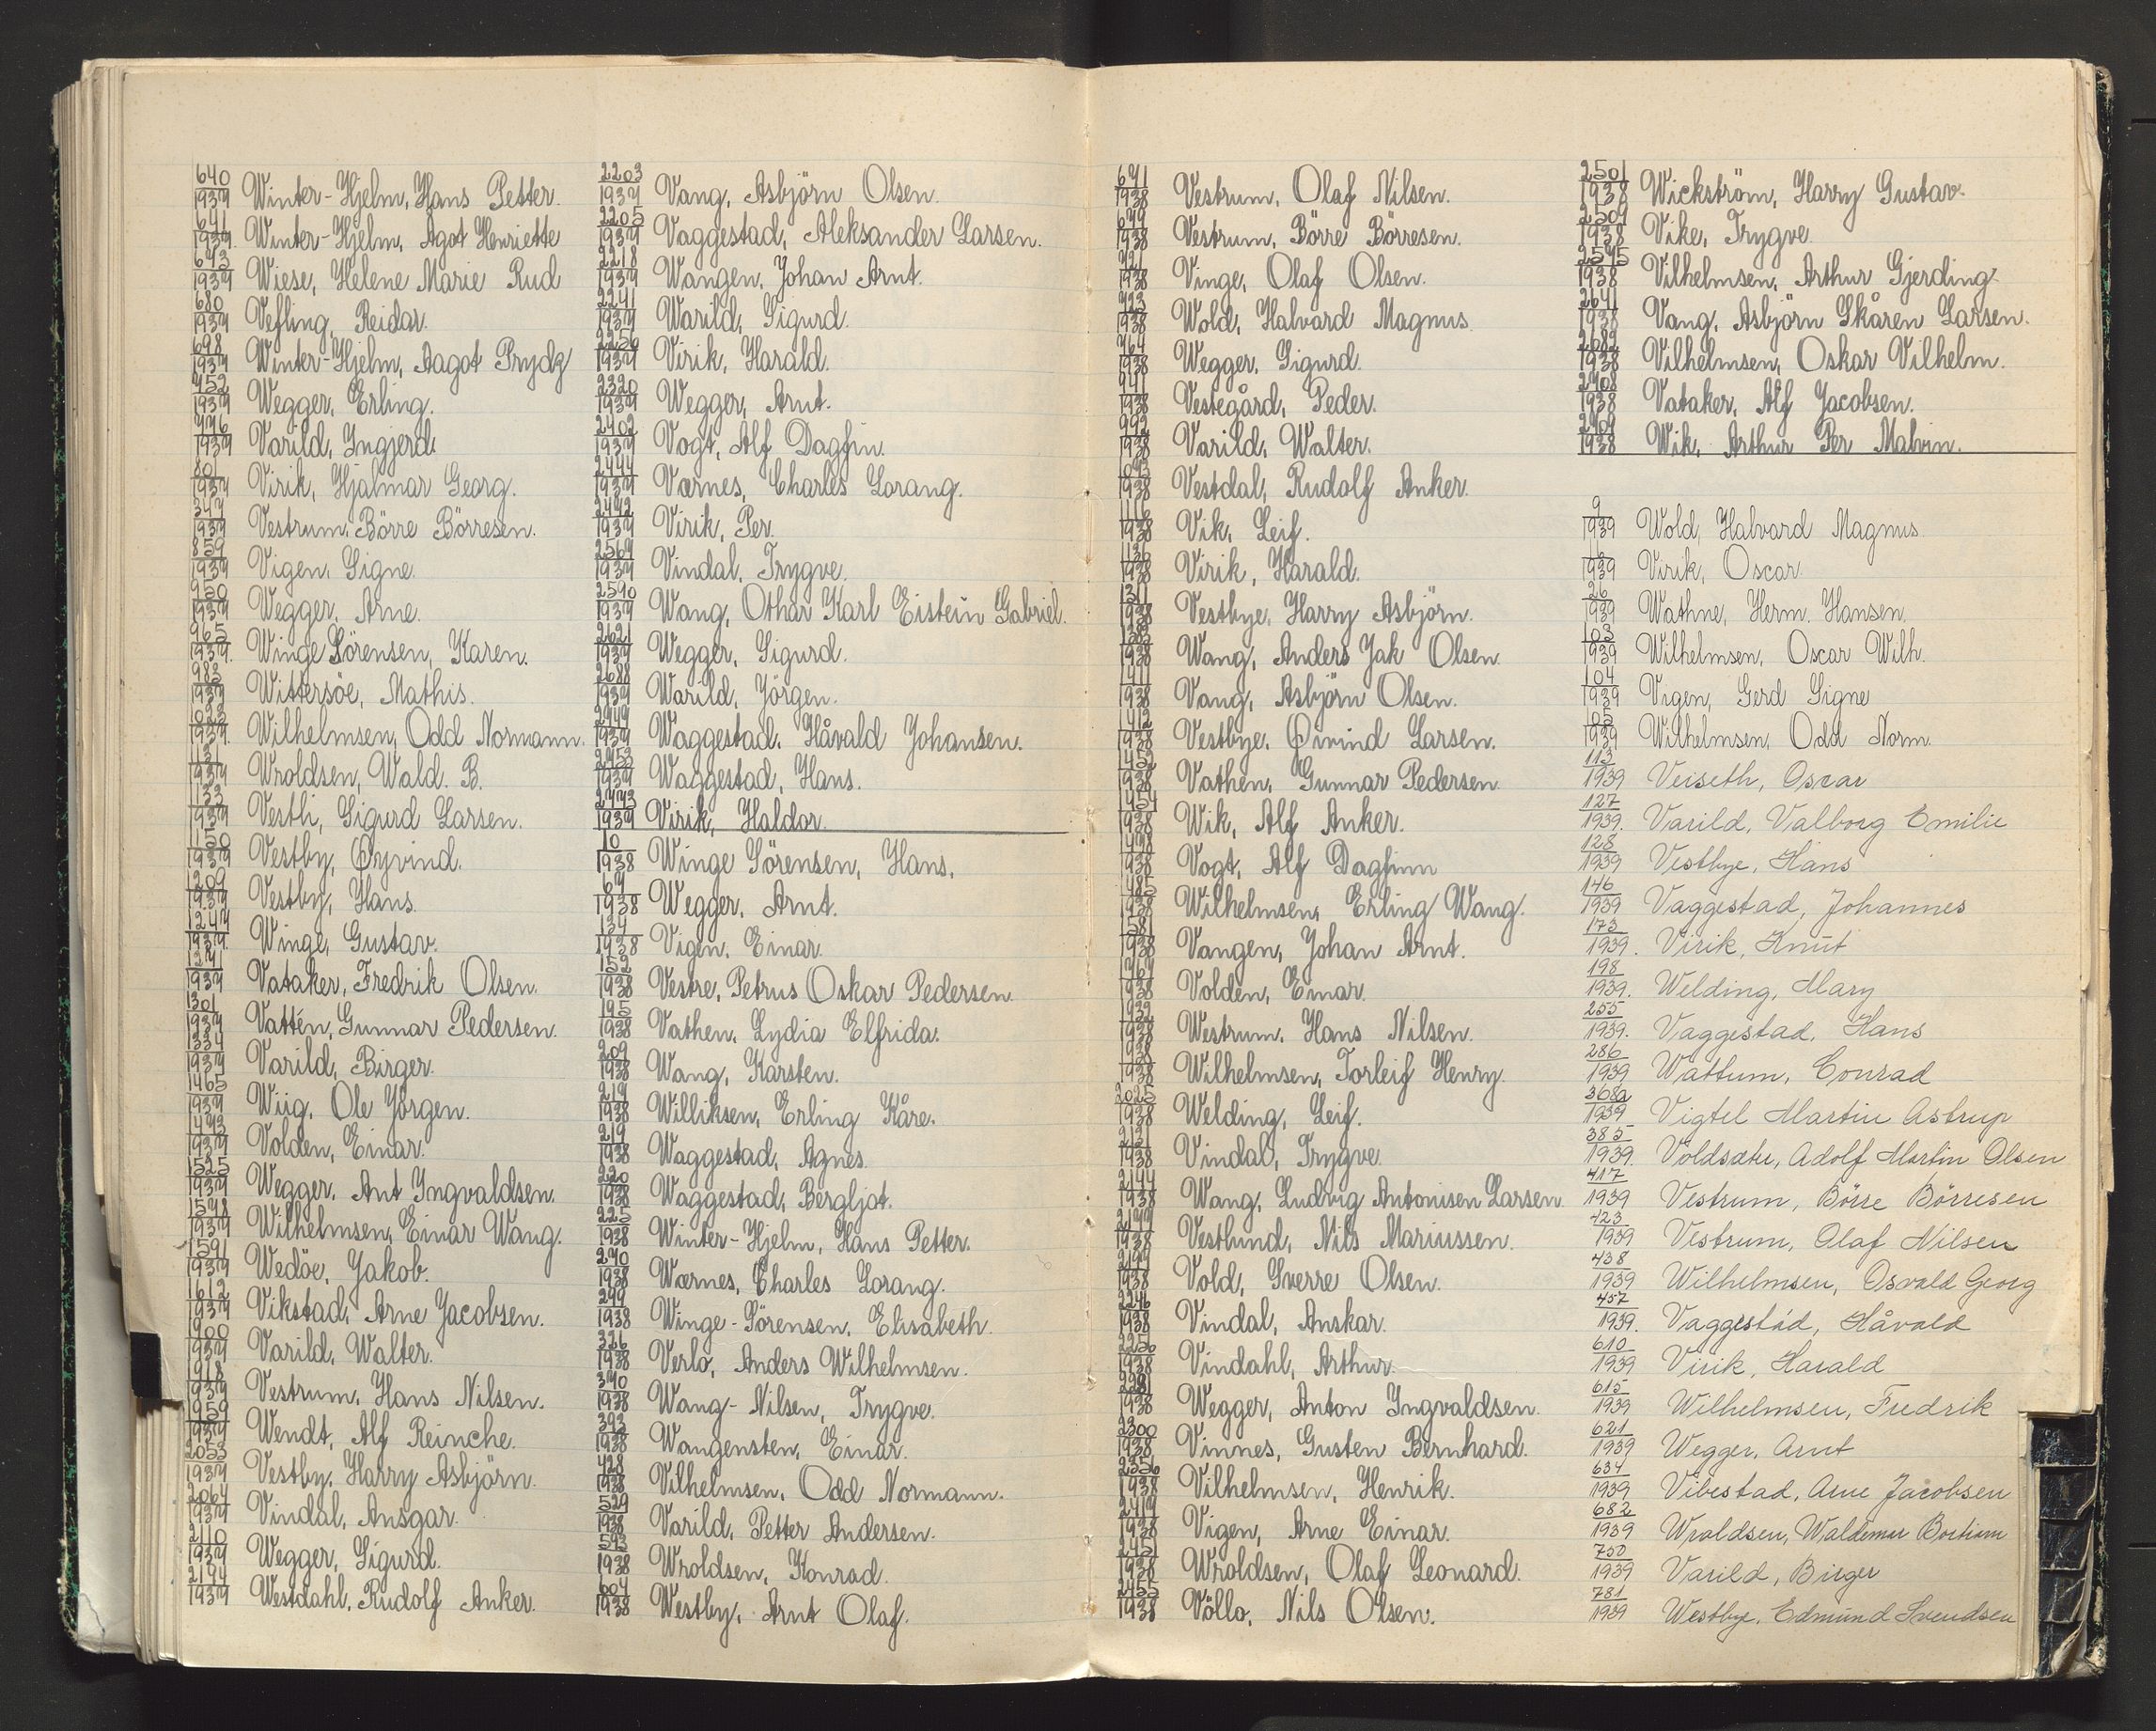 640/1937 Winter-Hjelm, Hans Petter.
641/1937. Winter-Hjelm, Agot Henriette
643/1937 Wiese, Helene Marie Rud
680/1937 Vefling, Reidar.
698/1937 Winter-Hjelm, Aagot Prydz
752/1937 Wegger, Erling.
776/1937 Varild, Ingjerd.
801/1937 Virik, Hjalmar Georg.
347/1937 Vestrum, Börre Börresen.
859/1937 Vigen, Signe.
950/1937 Wegger, Arne.
965/1937. Winge Sörensen, Karen.
983/1937 Wittersöe, Mathis.
1023/1937. Wilhelmsen, Odd Normann.
1131/1937 Wroldsen, Wald. B.
1133/1937 Vestli, Sigurd Larsen.
1150/1937 Vestby, Øyvind.
1209/1937 Vestby, Hans.
1247/1937. Winge, Gustav.
1271/1937 Vataker, Fredrik Olsen.
1301/1937 Vattén, Gunnar Pedersen.
1334/1937 Varild, Birger.
1465/1937 Wiig, Ole Jörgen.
1473/1937 Volden, Einar.
1525/1937 Wegger, Ant Ingvaldsen.
1578/1937 Wilhelmsen, Einar Wang.
1591/1937 Wedöe, Jakob.
1612/1937 Vikstad, Arne Jacobsen.
1900/1937 Varild, Walter.
1918/1937 Vestrum, Hans Nilsen.
1959/1937 Wendt, Alf Reinche.
2053/1937 Vestby, Harry Asbjörn.
2064/1937 Vindal, Ansgar.
2110/1937 Wegger, Sigurd.
2194/1937 Westdahl, Rudolf Anker.
2203/1937 Vang, Asbjörn Olsen.
2205/1937 Vaggestad, Aleksander Larsen.
2218/1937 Wangen, Johan Arnt.
2241/1937 Warild, Sigurd.
2256/1937 Virik, Harald.
2320/1937 Wegger, Arnt.
2402/1937 Vogt, Alf Dagfin.
2444/1937 Værnes, Charles Lorang.
2472/1937 Virik, Per.
2569/1937 Vindal, Trygve.
2590/1937 Wang, Othar Karl Eistein Gabriel.
2621/1937 Wegger, Sigurd.
2688/1937 Warild, Jörgen.
2749/1937 Waggestad, Håvald Johansen.
2753/1937 Waggestad, Hans.
2773/1937 Virik, Haldor.
10/1938 Winge Sörensen, Hans.
67/1938 Wegger, Arnt.
134/1938 Vigen, Einar.
152/1938 Vestre, Petrus Oskar Pedersen.
195/1938 Vathen, Lydia Elfrida.
209/1938 Wang, Karsten.
217/1938 Williksen, Erling Kåre.
219/1938 Waggestad, Agnes.
220/1938 Waggestad, Bergljot.
225/1938 Winter-Hjelm, Hans Petter.
290/1938 Wærnes, Charles Lorang.
299/1938 Winge-Sörensen, Elisabeth.
326/1938 Verlo, Anders Wilhelmsen.
370/1938 Wang-Nilsen, Trygve.
393/1938 Wangensten, Einar.
428/1938 Vilhelmsen, Odd Normann.
529/1938 Varild, Petter Andersen.
593/1938 Wroldsen, Konrad.
604/1938 Westby, Arnt Olaf.
671/1938 Vestrum, Olaf Nilsen.
679/1938 Vestrum, Börre Börresen.
721/1938 Vinge, Olaf Olsen.
723/1938 Wold, Halvard Magnus.
764/1938 Wegger, Sigurd.
941/1938 Vestegård, Peder.
992/1938 Varild, Walter.
1093/1938 Vestdal, Rudolf Anker.
1116/1938 Vik, Leif.
1136/1938 Virik, Harald.
1311/1938 Vestbye, Harry Asbjörn.
1382/1938 Wang, Anders Jak Olsen.
1411/1938 Vang, Asbjörn Olsen.
1412/1938 Vestbye, Øivind Larsen.
1452/1938 Vathen, Gunnar Pedersen.
1454/1938 Wik, Alf Anker.
1478/1938 Vogt, Alf Dagfinn
1485/1938 Wilhelmsen, Erling Wang.
1581/1938 Vangen, Johan Arnt.
1767/1938 Volden, Einar.
1922/1938 Westrum, Hans Nilsen.
1938 Wilhelmsen, Torleif Henry.
2025/1938 Welding, Leif.
2121/1938 Vindal, Trygve.
2144/1938 Wang, Ludvig Antonisen Larsen.
2177/1938 Vestlund, Nils Mariussen.
2197/1938 Vold, Sverre Olsen.
2246/1938 Vindal, Anskar.
2256/1938 Vindahl, Arthur.
2281/1938 Wegger, Anton Ingvaldsen.
2300/1938 Vinnes, Gusten Bernhard.
2356/1938 Vilhelmsen, Henrik.
2419/1938 Vigen, Arne Einar.
2451/1938 Wroldsen, Olaf Leonard.
2455/1938 Völlo, Nils Olsen.
2501/1938 Wickström, Harry Gustav.
2509/1938 Vike, Trygve.
2575/1938 Vilhelmsen, Arthur Gjerding.
2641/1938 Vang, Asbjörn Skåren Larsen.
2682/1938 Vilhelmsen, Oskar Vilhelm.
2708/1938 Vataker, Alf Jacobsen.
2709/1938 Wik, Arthur Per Malvin.
9/1939 Wold, Halvard Magnus.
1939 Virik, Oscar.
26/1939 Wathne, Herm. Hansen.
103/1939 Wilhelmsen, Oscar Wilh.
104/1939 Vigen, Gerd Signe
105/1939 Wilhelmsen, Odd Norm.
113/1939 Veiseth, Oscar
127/1939. Varild, Valborg Emilie
128/1939 Vestbye, Hans
146/1939 Vaggestad, Johannes
173/1939. Virik, Knut
198/1939. Welding, Mary
255/1939. Vaggestad, Hans
286/1939 Wattum, Conrad
368a/1939 Vigtel Martin Astrup
385/1939. Voldsæter, Adolf Martin Olsen
417/1939 Vestrum, Börre Börresen
423/1939 Vestrum, Olaf Nilsen
438/1939 Wilhelmsen, Osvald Georg
457/1939. Vaggestad, Håvald
610/1939 Virik, Harald
615/1939 Wilhelmsen, Fredrik
621/1939 Wegger, Arnt
634/1939 Vibestad, Arne Jacobsen
682/1939 Wroldsen, Waldemar Bertium
750/1939 Varild, Birger
781/1939 Westbye, Edmund Svendsen